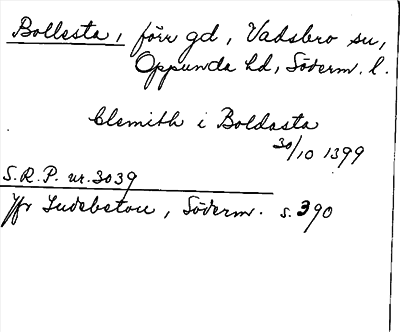 Bollesta, förr gd, Vadsbro sn,
Oppunda hd, Söderm. l.
Clemith i Boldasta
30/10 1399
S.R.P. nr. 3039
Jfr Indebetou, Söderm. s. 390